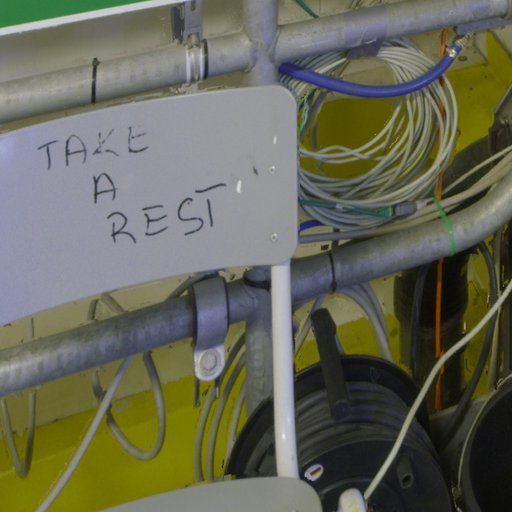 TAKE
A
REST